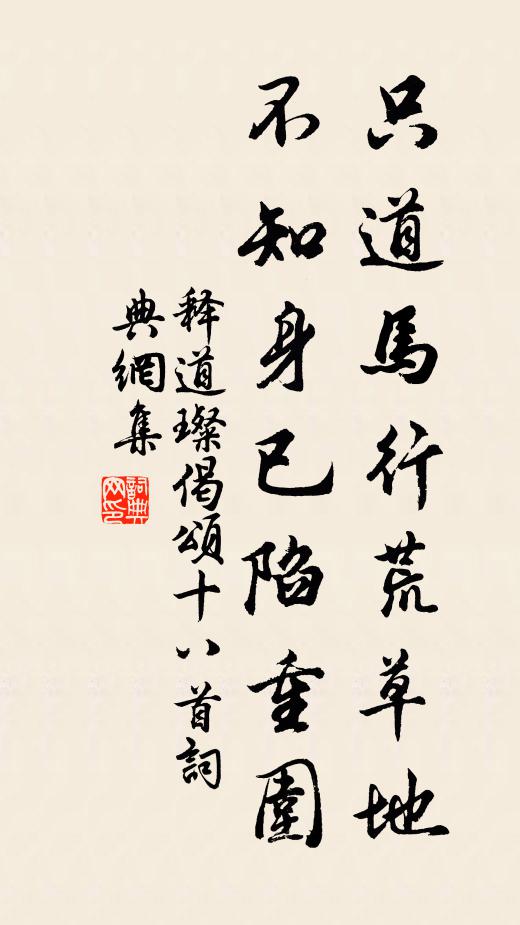 只道馬行荒草地
不知身已陷重圍
释道璨偈頌十八首詞
典網集
詞典网印